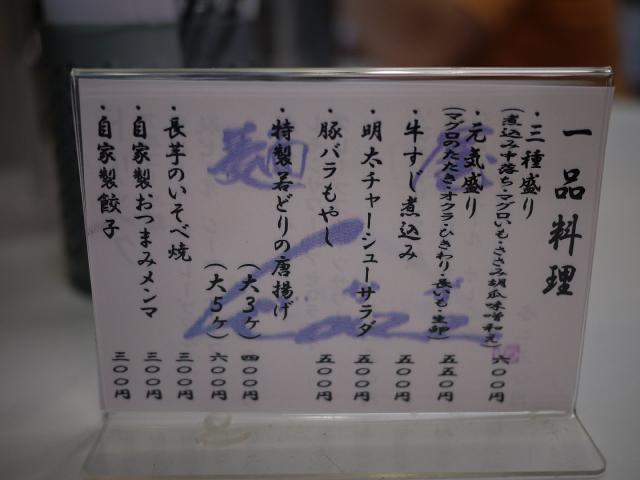 一品料理
・三種盛り
(煮込み中落ち・マグロいも・ささみ胡瓜味噌和え)
六〇〇円
・元気盛り
(マグロのたたき・オクラ・ひきわり・長いも・生卵)
五五〇円
・牛すじ煮込み
五〇〇円
・明太チャーシューサラダ
五〇〇円
・豚バラもやし
五〇〇円
・特製若どりの唐揚げ
(大3ケ)
四〇〇円
(大5ケ)
六〇〇円
・長芋のいそべ焼
三〇〇円
・自家製おつまみメンマ
三〇〇円
・自家製餃子
三〇〇円
麺